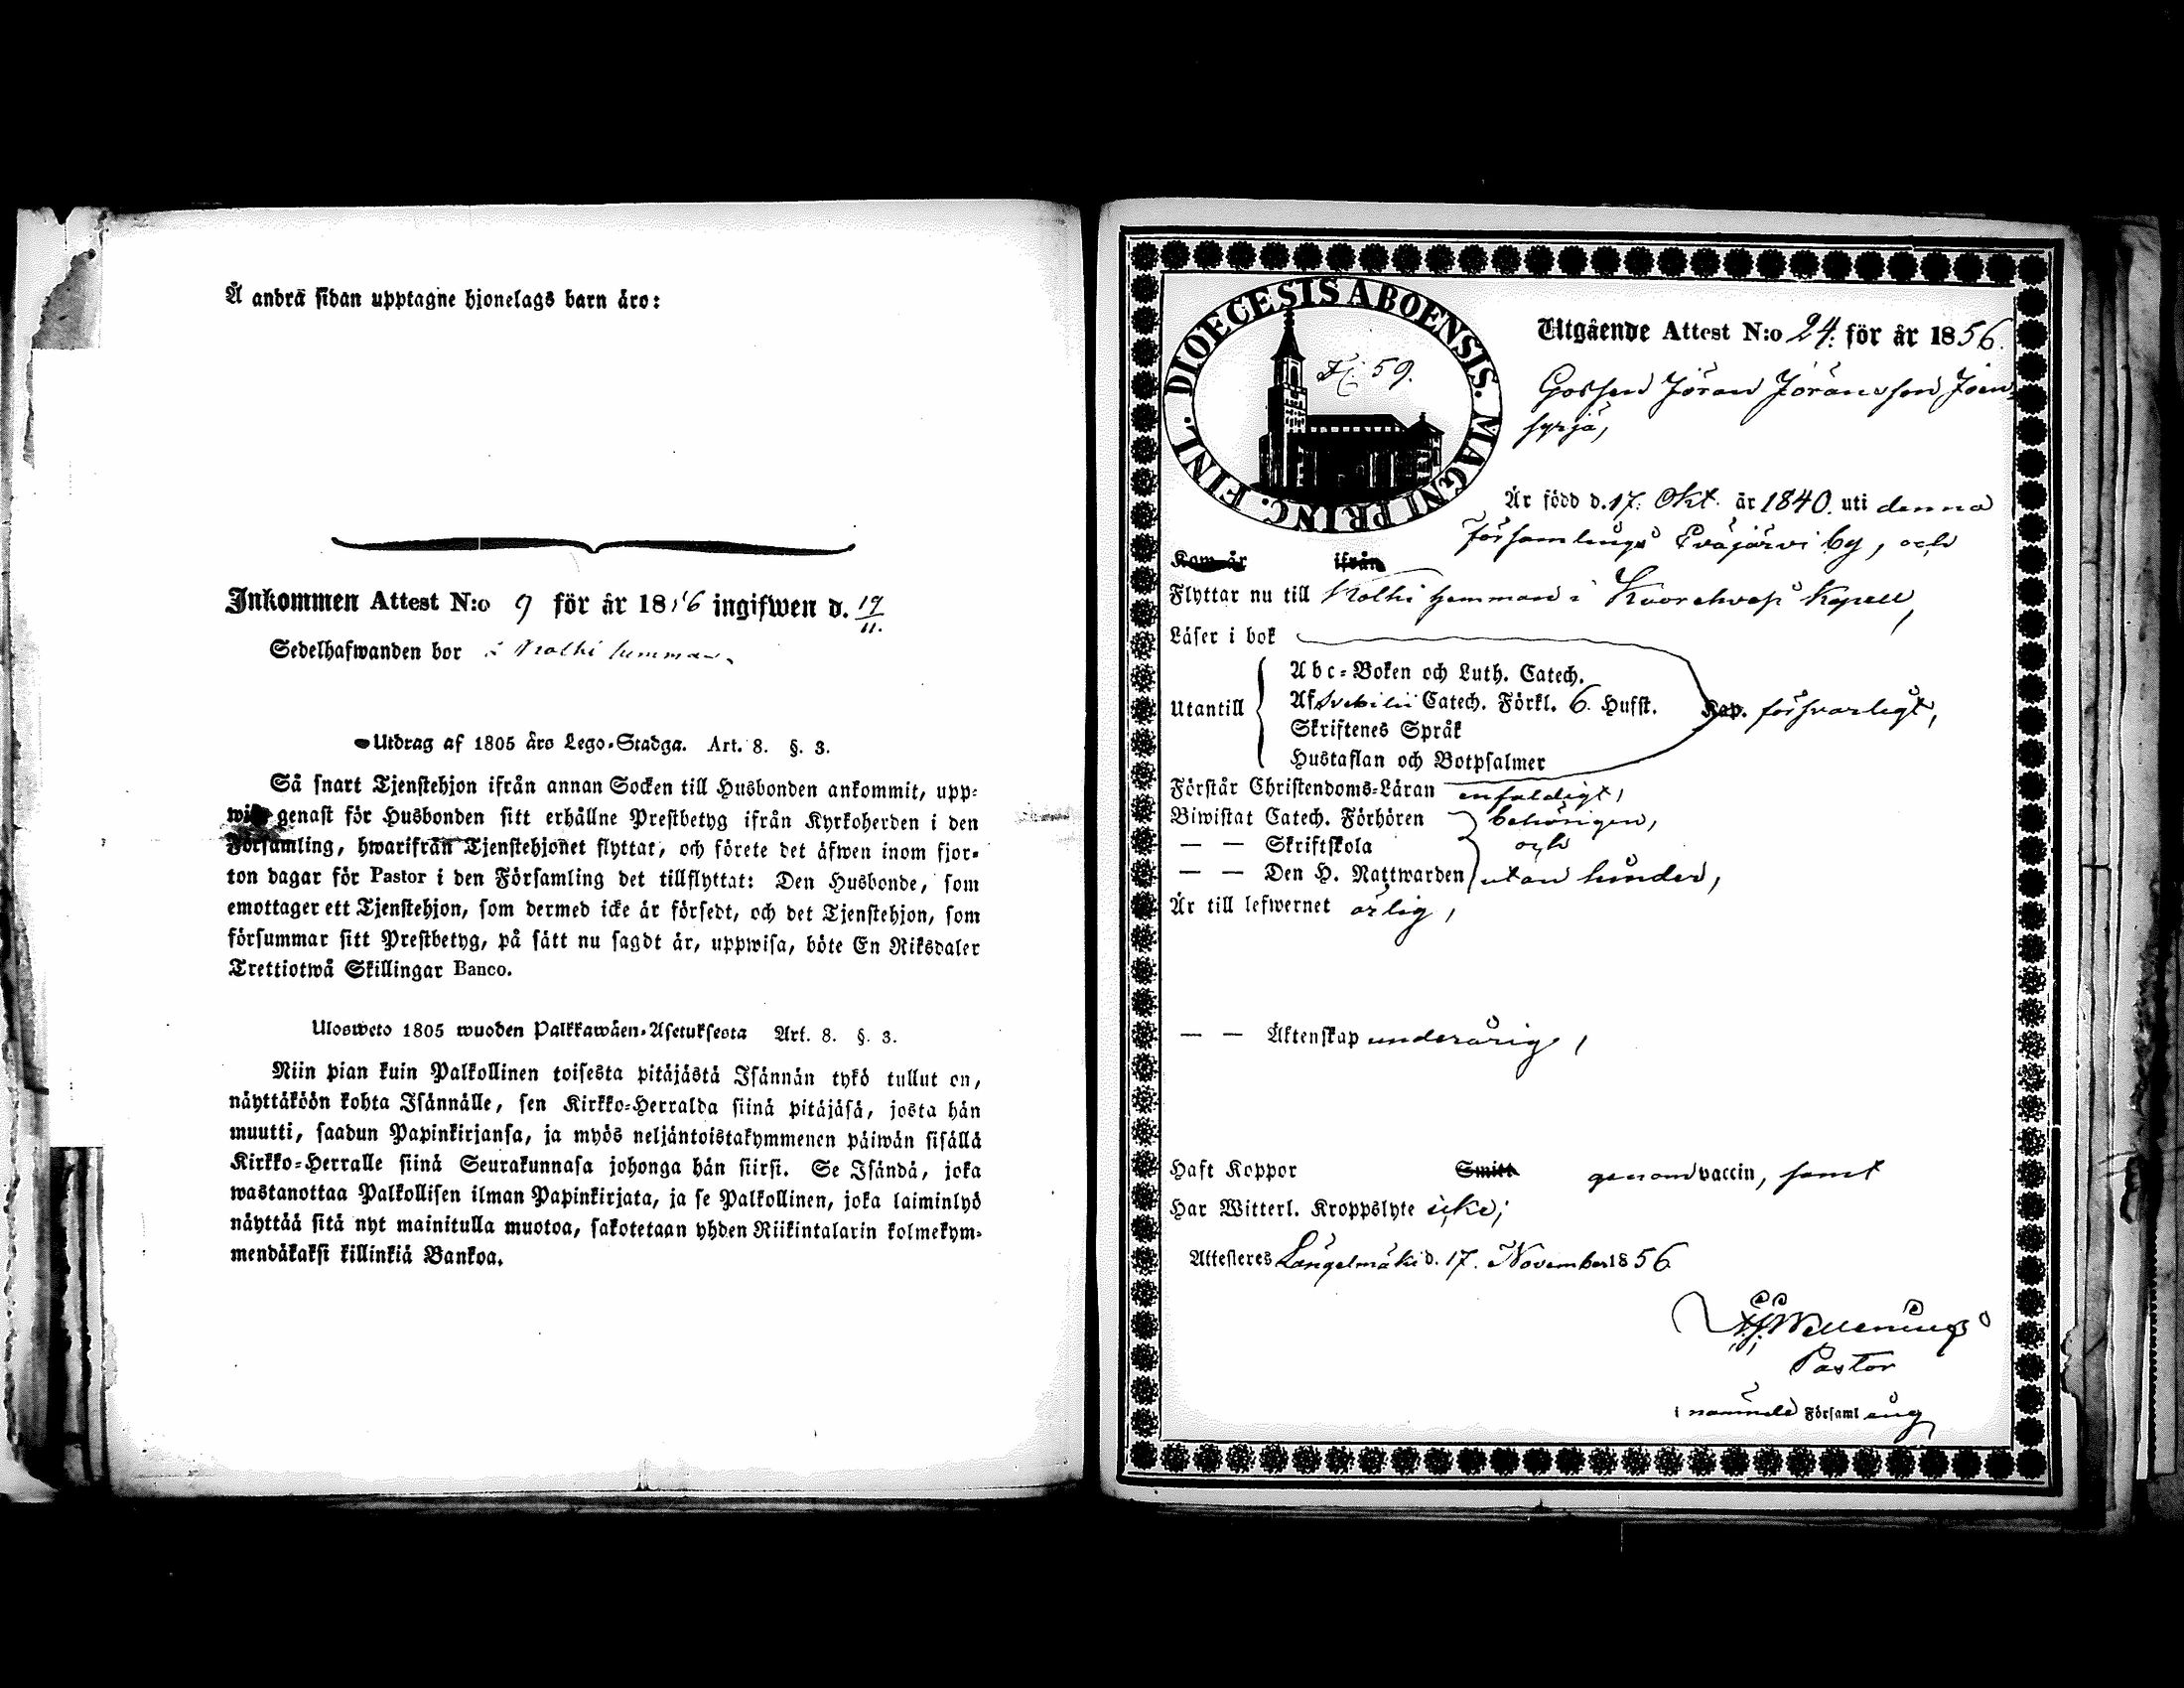 Å andra sidan upptagne hjonelags barn äro:
Inkommen Attest N:o 9 för år 1856 ingifwen d. 19/11.
Sedelhafwanden bor i Kolhi hemman
Utdrag af 1805 års Lego-Stadga. Art. 8. §. 3.
Så snart Tjenstehjon ifrån annan Socken till Husbonden ankommit, upp-
wise genast för Husbonden sitt erhållne Prestbetyg ifrån Kyrkoherden i den
Församling, hwarifrån Tjenstehjonet flyttat, och förete det äfwen inom fjor-
ton dagar för Pastor i den Församling det tillflyttat: Den Husbonde, som
emottager ett Tjenstehjon, som dermed icke är försedt, och det Tjenstehjon, som
försummar sitt Prestbetyg, på sätt nu sagdt är, uppwisa, böte En Riksdaler
Trettiotwå Skillingar Banco.
Ulosweto 1805 wuoden Palkkawäen-Asetuksesta Art. 8. §. 3.
Niin pian kuin Palkollinen toisesta pitäjästä Isännän tykö tullut on,
näyttäköön kohta Isännälle, sen Kirkko-Herralda siinä pitäjäsä, josta hän
muutti, saadun Papinkirjansa, ja myös neljäntoistakymmenen päiwän sisällä
Kirkko-Herralle siinä Seurakunnasa johonga hän siirsi. Se Isändä, joka
wastanottaa Palkollisen ilman Papinkirjata, ja se Palkollinen, joka laiminlyö
näyttää sitä nyt mainitulla muotoa, sakotetaan yhden Riikintalarin kolmekym-
mendäkaksi killinkiä Bankoa.
DIOECESIS ABOENSIS. MAGNI PRINC. FINL.
59.
Utgående Attest N:o 24. för år 1856.
Gossen Jöran Jöransson Joen-
syrjä,
Är född d. 17. Okt. år 1840. uti denna
Församlings Eväjärvi by, och
Kom år ifrån
Flyttar nu till Kolhi hemman i Kuorehvesi Kapell,
Läser i bok
Utantill
Abc-Boken och Luth. Catech.
Af Svebilii Catech. Förkl. 6. Hufst. Kap. försvarligt,
Skriftenes Språk
Hustaflan och Botpsalmer
Förstår Christendoms-Läran enfaldigt,
Biwistat Catech. Förhören behörigen,
— — Skriftskola och
— — Den H. Nattwarden utan hinder,
Är till lefwernet ärlig,
— — Äktenskap underårig,
Haft Koppor Smitt genom vaccin, samt
Har Witterl. Kroppslyte icke;
Attesteres Längelmäki d. 17. November 1856
Pastor
i nämnde Församling